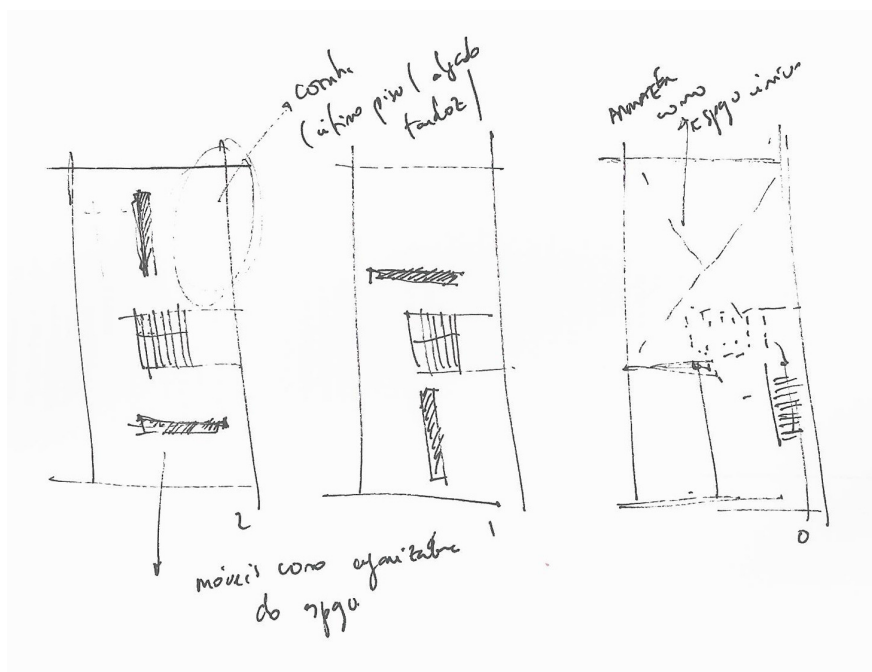 cozinha
(último piso / alçado
tardoz)
ARMAZÉM
como
espaço único
2
1
0
móveis como organizadores
do espaço